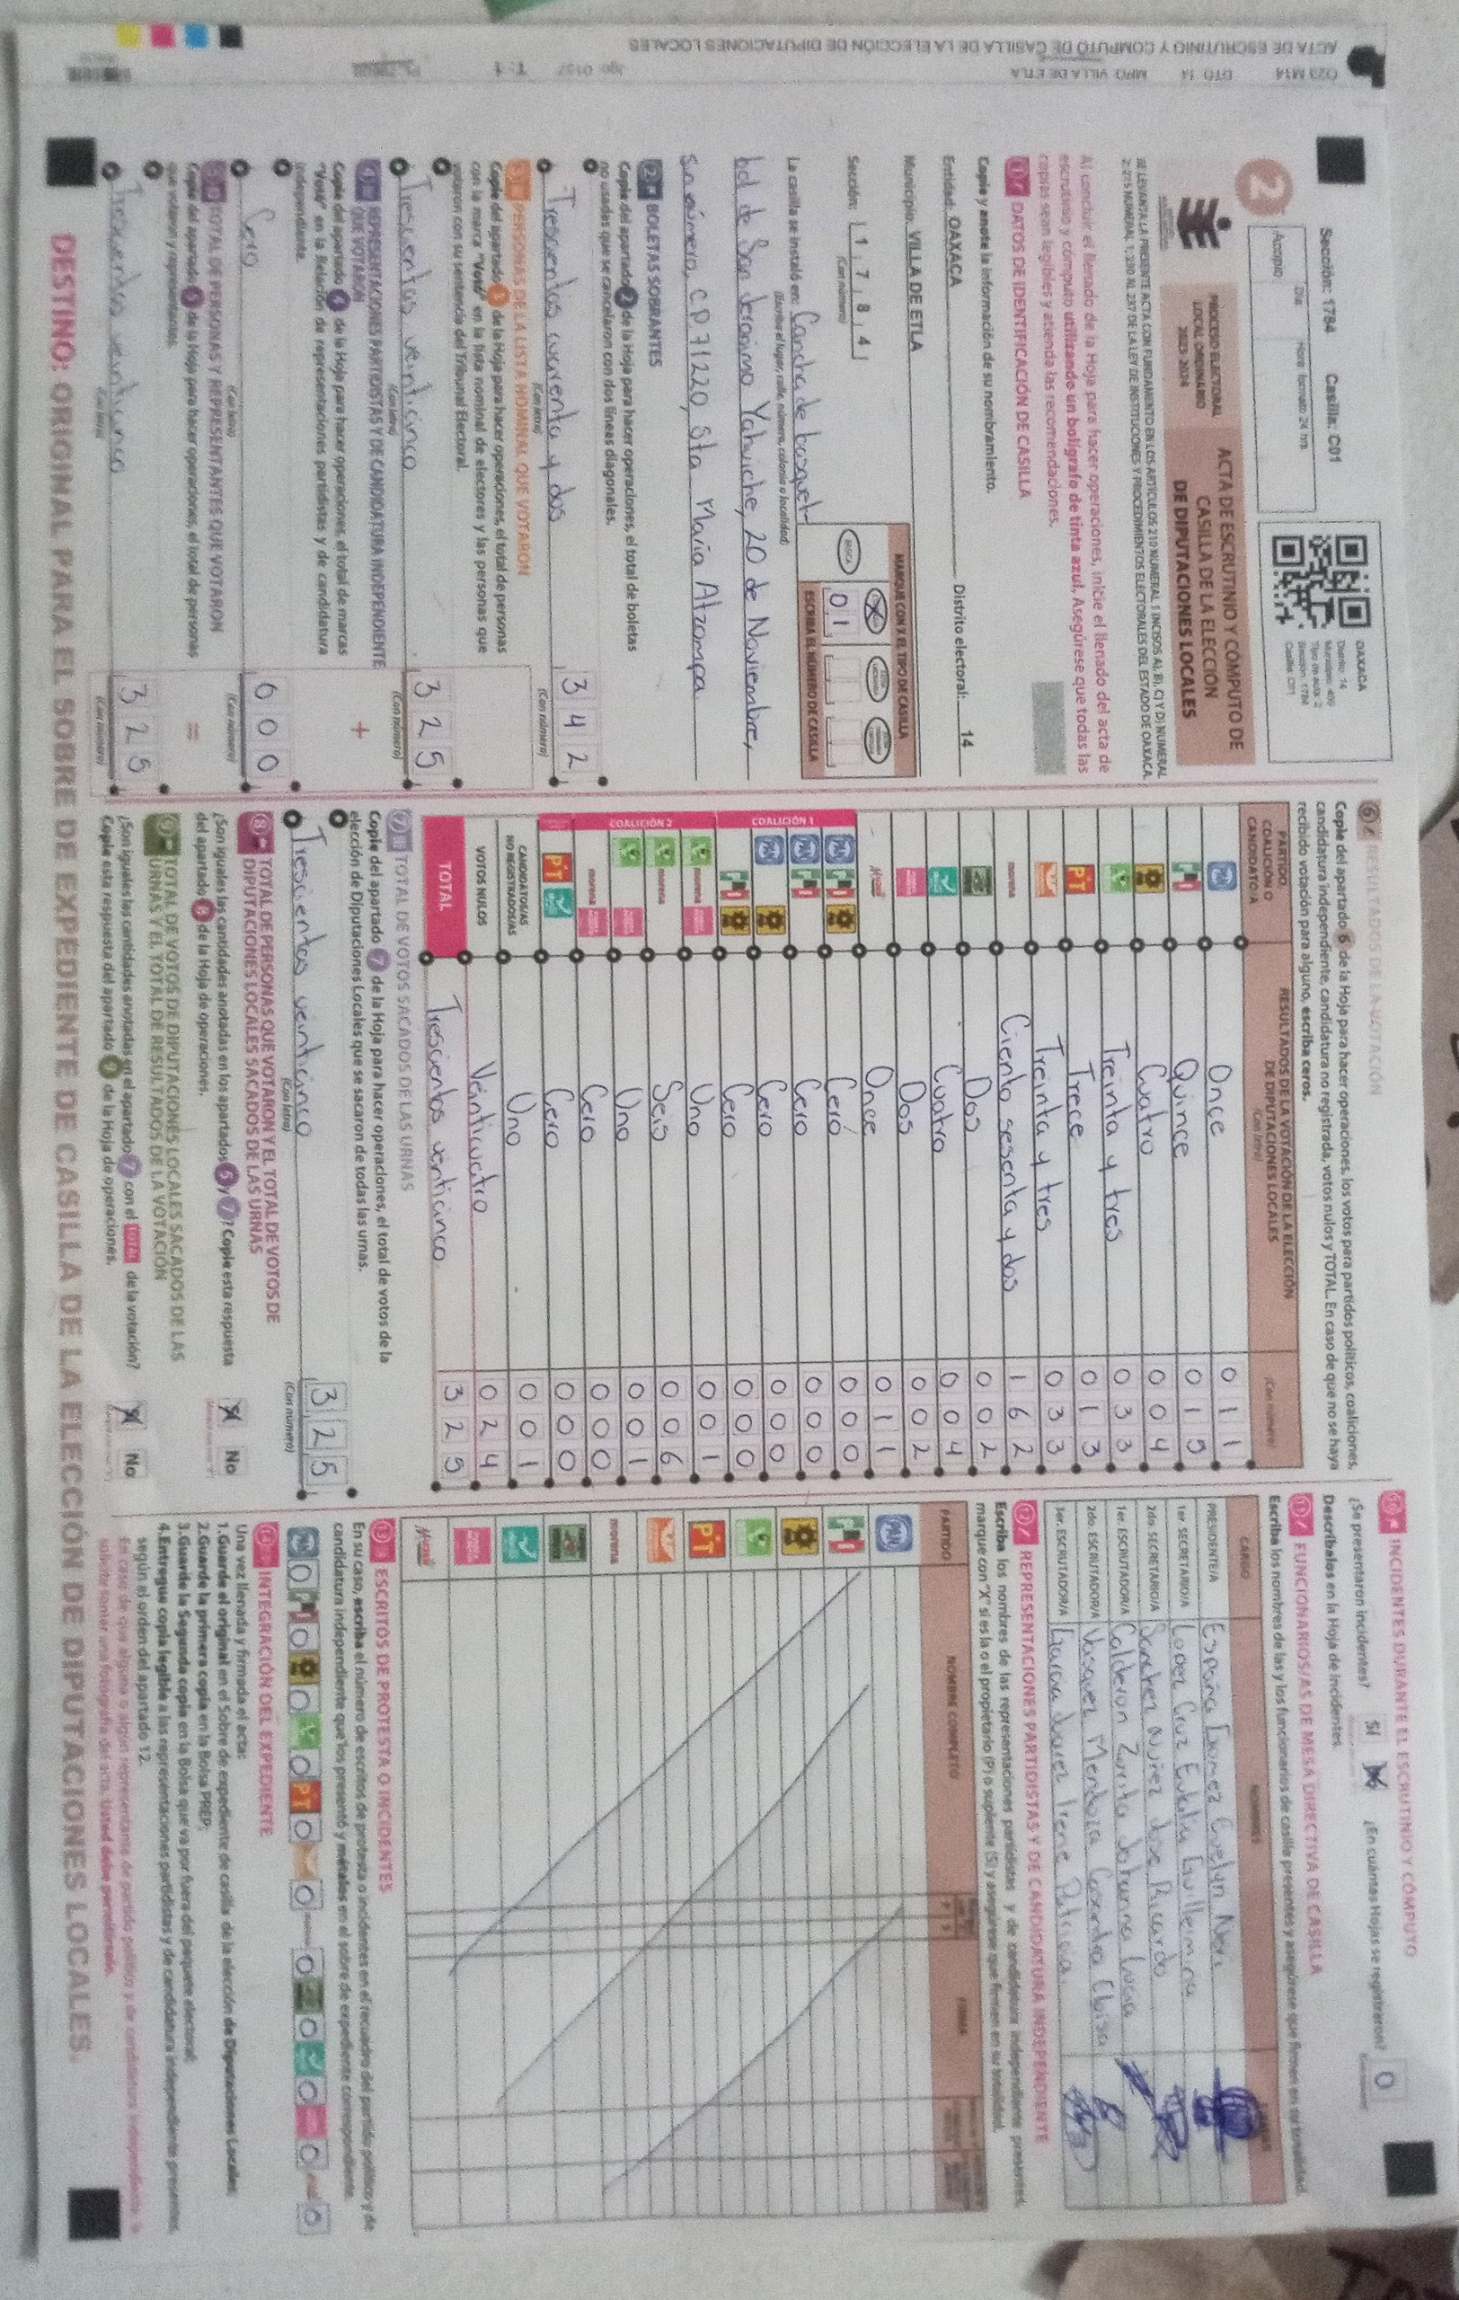 Sección: 1784 Casilla: C01
Día Hora: formato 24 hrs.
Acopio
2
OAXACA
Distrito: 14
Sección: 1784
Casilla: C01
PROCESO ELECTORAL
LOCAL ORDINARIO
2023-2024
ACTA DE ESCRUTINIO Y CÓMPUTO DE
CASILLA DE LA ELECCIÓN
DE DIPUTACIONES LOCALES
Al concluir el llenado de la Hoja para hacer operaciones, inicie el llenado del acta de
escrutinio y cómputo utilizando un bolígrafo de tinta azul. Asegúrese que todas las
copias sean legibles y atienda las recomendaciones.
1 DATOS DE IDENTIFICACIÓN DE CASILLA
Copie y anote la información de su nombramiento.
Entidad: OAXACA Distrito electoral: 14
Municipio: VILLA DE ETLA
Sección: 1 7 8 4
(Con número)
MARQUE CON X EL TIPO DE CASILLA
BÁSICA X
ESCRIBA EL NÚMERO DE CASILLA
0 1
La casilla se instaló en: Cancha de basquet-
(Escriba el lugar, calle, número, colonia o localidad)
bol de San Jeronimo Yahuiche, 20 de Noviembre,
Sin número, C.P 71220, Sta María Atzompa
2 BOLETAS SOBRANTES
Copie del apartado 2 de la Hoja para hacer operaciones, el total de boletas
no usadas que se cancelaron con dos líneas diagonales.
Trescientos cuarenta y dos 3 4 2
(Con letra) (Con número)
3 PERSONAS DE LA LISTA NOMINAL QUE VOTARON
Copie del apartado 3 de la Hoja para hacer operaciones, el total de personas
con la marca "Votó" en la lista nominal de electores y las personas que
votaron con su sentencia del Tribunal Electoral.
Trescientos veinticinco 3 2 5
(Con letra) (Con número)
4 REPRESENTACIONES PARTIDISTAS Y DE CANDIDATURA INDEPENDIENTE
QUE VOTARON +
Copie del apartado 4 de la Hoja para hacer operaciones, el total de marcas
"Votó" en la Relación de representaciones partidistas y de candidatura
independiente.
Cero 0 0 0
(Con letra) (Con número)
5 TOTAL DE PERSONAS Y REPRESENTANTES QUE VOTARON
Copie del apartado 5 de la Hoja para hacer operaciones, el total de personas =
que votaron y representantes.
Trescientos veinticinco 3 2 5
(Con letra) (Con número)
6 RESULTADOS DE LA VOTACIÓN
Copie del apartado 6 de la Hoja para hacer operaciones, los votos para partidos políticos, coaliciones,
candidatura independiente, candidatura no registrada, votos nulos y TOTAL. En caso de que no se haya
recibido votación para alguno, escriba ceros.
PARTIDO,
COALICIÓN O
CANDIDATO/A
RESULTADOS DE LA VOTACIÓN DE LA ELECCIÓN
DE DIPUTACIONES LOCALES
(Con letra) (Con número)
PAN Once 0 1 1
PRI Quince 0 1 5
Cuatro 0 0 4
Treinta y tres 0 3 3
PT Trece 0 1 3
Treinta y tres 0 3 3
morena Ciento sesenta y dos 1 6 2
Dos 0 0 2
Cuatro 0 0 4
Dos 0 0 2
Once 0 1 1
COALICIÓN 1
Cero 0 0 0
Cero 0 0 0
Cero 0 0 0
Cero 0 0 0
COALICIÓN 2
morena Uno 0 0 1
morena Seis 0 0 6
Uno 0 0 1
morena Cero 0 0 0
PT Cero 0 0 0
CANDIDATOS/AS
NO REGISTRADOS/AS Uno 0 0 1
VOTOS NULOS Veinticuatro 0 2 4
TOTAL Trescientos venticinco 3 2 5
7 TOTAL DE VOTOS SACADOS DE LAS URNAS
Copie del apartado 7 de la Hoja para hacer operaciones, el total de votos de la
elección de Diputaciones Locales que se sacaron de todas las urnas.
Trescientos veinticinco 3 2 5
(Con letra) (Con número)
8 TOTAL DE PERSONAS QUE VOTARON Y EL TOTAL DE VOTOS DE
DIPUTACIONES LOCALES SACADOS DE LAS URNAS
¿Son iguales las cantidades anotadas en los apartados 5 y 7? Copie esta respuesta
del apartado 8 de la Hoja de operaciones. No
9 TOTAL DE VOTOS DE DIPUTACIONES LOCALES SACADOS DE LAS
URNAS Y EL TOTAL DE RESULTADOS DE LA VOTACIÓN
¿Son iguales las cantidades anotadas en el apartado 7 con el TOTAL de la votación?
Copie esta respuesta del apartado 9 de la Hoja de operaciones. No
10 INCIDENTES DURANTE EL ESCRUTINIO Y CÓMPUTO
¿Se presentaron incidentes? Sí ¿En cuántas Hojas se registraron? 0
Descríbalos en la Hoja de Incidentes.
11 FUNCIONARIOS/AS DE MESA DIRECTIVA DE CASILLA
Escriba los nombres de las y los funcionarios de casilla presentes y asegúrese que firmen en su totalidad.
CARGO NOMBRES
PRESIDENTE/A España Gomez Evelyn Neri
1er. SECRETARIO/A Lopez Cruz Eulalia Guillermina
2do. SECRETARIO/A Sanchez Nuñez Jose Ricardo
1er. ESCRUTADOR/A Calderon Zorita Johanna Lucia
2do. ESCRUTADOR/A Vasquez Mendoza Casandra Eloisa
3er. ESCRUTADOR/A Garcia Juarez Irene Patricia
12 REPRESENTACIONES PARTIDISTAS Y DE CANDIDATURA INDEPENDIENTE
Escriba los nombres de las representaciones partidistas y de candidatura independiente presentes,
marque con "X" si es la o el propietario (P) o suplente (S) y asegúrese que firmen en su totalidad.
PARTIDO NOMBRE COMPLETO
PAN
PRI
PT
morena
13 ESCRITOS DE PROTESTA O INCIDENTES
En su caso, escriba el número de escritos de protesta o incidentes en el recuadro del partido político y de
candidatura independiente que los presentó y métalos en el sobre de expediente correspondiente.
0 0 0 0 0 0 0 0 0 0 0
14 INTEGRACIÓN DEL EXPEDIENTE
Una vez llenada y firmada el acta:
1.Guarde el original en el Sobre de expediente de casilla de la elección de Diputaciones Locales;
2.Guarde la primera copia en la Bolsa PREP;
3.Guarde la Segunda copia en la Bolsa que va por fuera del paquete electoral;
4.Entregue copia legible a las representaciones partidistas y de candidatura independiente presentes,
según el orden del apartado 12.
DESTINO: ORIGINAL PARA EL SOBRE DE EXPEDIENTE DE CASILLA DE LA ELECCIÓN DE DIPUTACIONES LOCALES.
DTO 14 MPIO VILLA DE ETLA
ACTA DE ESCRUTINIO Y CÓMPUTO DE CASILLA DE LA ELECCIÓN DE DIPUTACIONES LOCALES